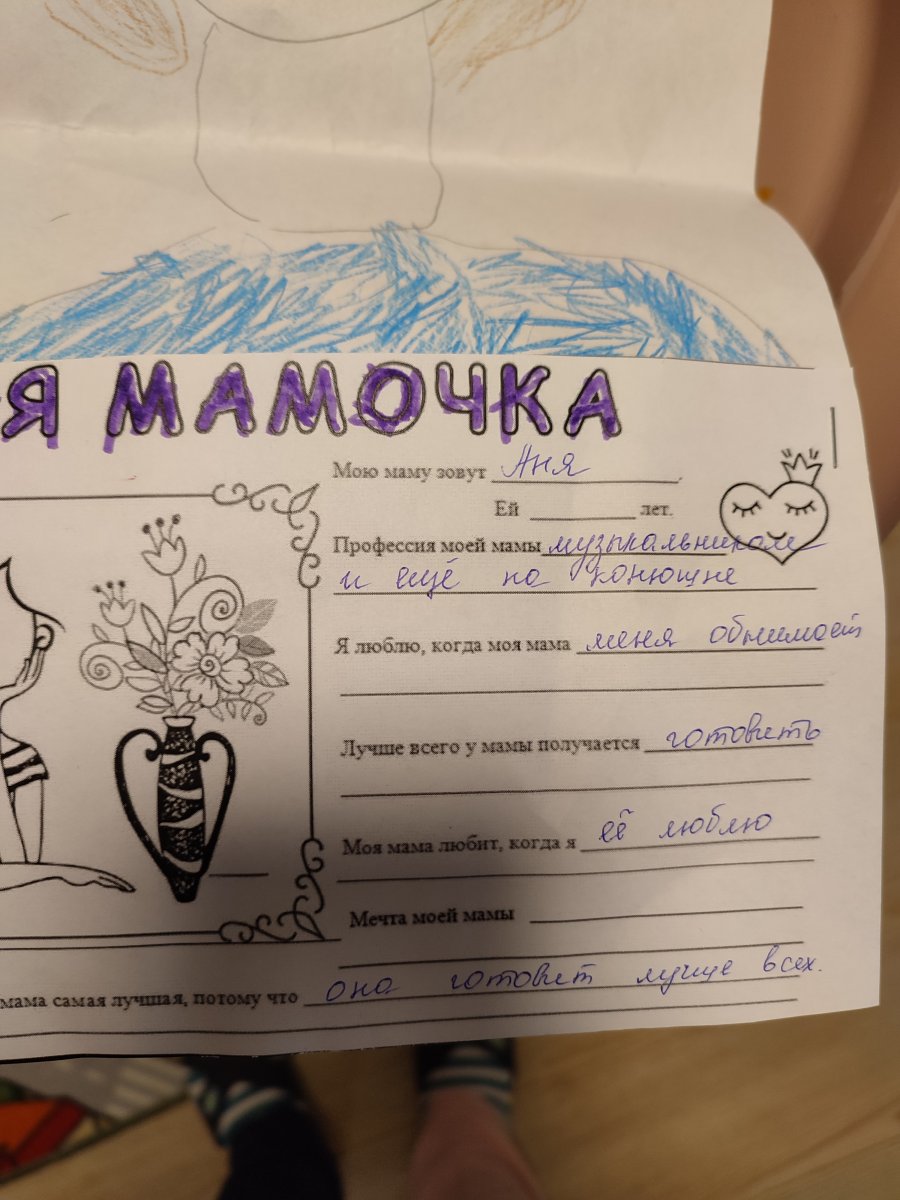 Я МАМОЧКА
Мою маму зовут Аня.
Ей лет.
Профессия моей мамы музыкальником
и ещё на конюшне
Я люблю, когда моя мама меня обнимает
Лучше всего у мамы получается готовить
Моя мама любит, когда я её люблю
Мечта моей мамы
мама самая лучшая, потому что она готовит лучше всех.